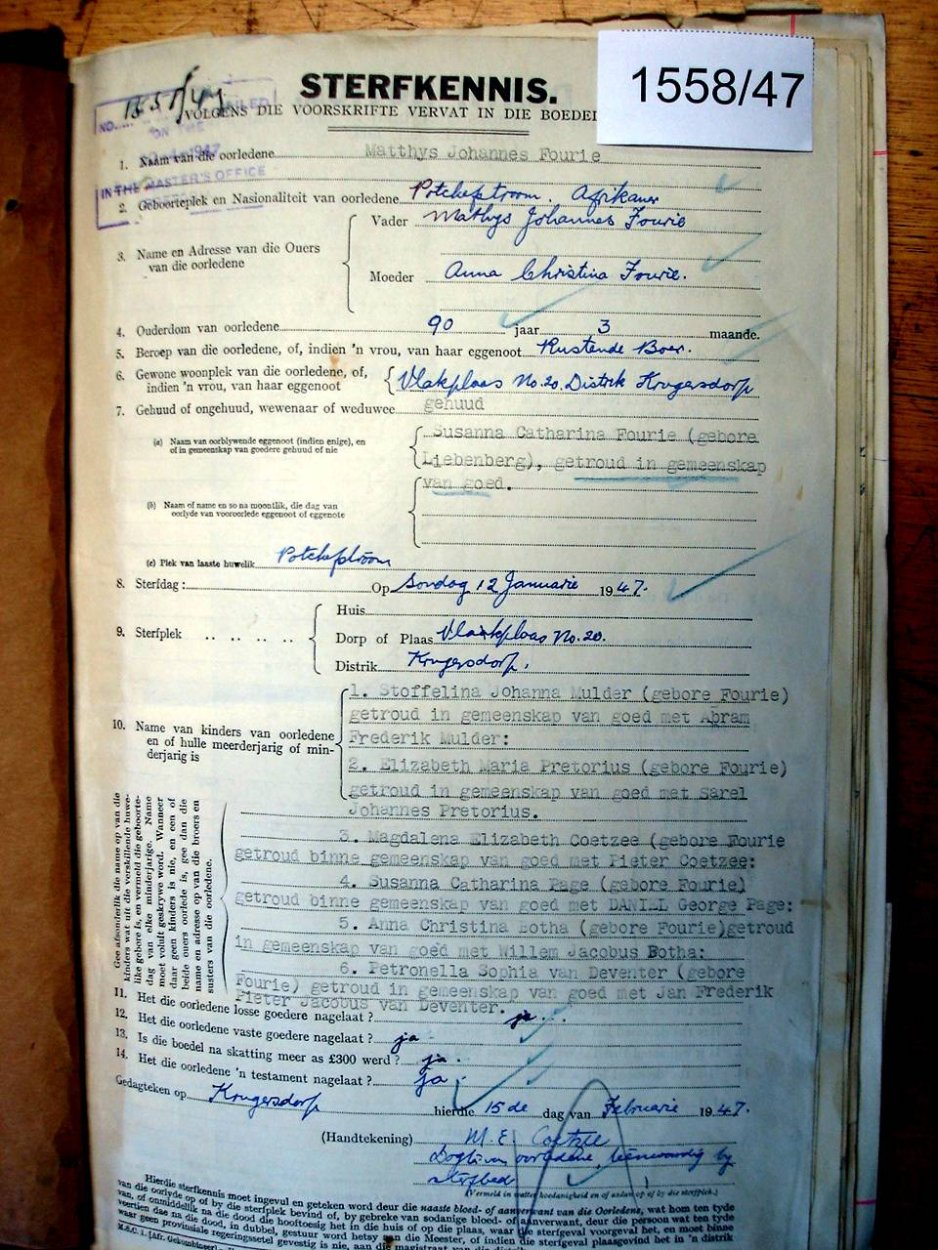 1558/47
STERFKENNIS.
VOLGENS DIE VOORSKRIFTE VERVAT IN DIE BOEDEL
NO. 1558/47
ON THE
IN THE MASTER'S OFFICE
1. Naam van die oorledene Matthys Johannes Fourie
2. Geboorteplek en Nasionaliteit van oorledene Potchefstroom. Afrikaner
3. Name en Adresse van die Ouers van die oorledene
Vader Mathys Johannes Fourie
Moeder Anna Christina Fourie.
4. Ouderdom van oorledene 90 jaar 3 maande.
5. Beroep van die oorledene, of, indien 'n vrou, van haar eggenoot Rustende Boer.
6. Gewone woonplek van die oorledene, of,
indien 'n vrou, van haar eggenoot Vlakplaas No. 20. Distrik Krugersdorp
7. Gehuud of ongehuud, wewenaar of weduwee gehuud
(a) Naam van oorblywende eggenoot (indien enige), en
of in gemeenskap van goedere gehuud of nie
Susanna Catharina Fourie (gebore
Liebenberg), getroud in gemeenskap
van goed.
(b) Naam of name en so na moontlik, die dag van
oorlyde van vooroorlede eggenoot of eggenote
(c) Plek van laaste huwelik Potchefstroom
8. Sterfdag: Op Sondag 12 Januarie 1947.
9. Sterfplek
Huis
Dorp of Plaas Vlakplaas No. 20.
Distrik Krugersdorp.
10. Name van kinders van oorledene
en of hulle meerderjarig of min-
derjarig is
1. Stoffelina Johanna Mulder (gebore Fourie)
getroud in gemeenskap van goed met Abram
Frederik Mulder:
2. Elizabeth Maria Pretorius (gebore Fourie)
getroud in gemeenskap van goed met Sarel
Johannes Pretorius.
3. Magdalena Elizabeth Coetzee (gebore Fourie
getroud binne gemeenskap van goed met Pieter Coetzee:
4. Susanna Catharina Page (gebore Fourie)
getroud binne gemeenskap van goed met DANIEL George Page:
5. Anna Christina Botha (gebore Fourie)getroud
in gemeenskap van goed met Willem Jacobus Botha:
6. Petronella Sophia van Deventer (gebore
Fourie) getroud in gemeenskap van goed met Jan Frederik
Pieter Jacobus van Deventer.
Gee afsonderlik die name op van die
kinders wat uit die verskillende huwe-
like gebore is, en vermeld die geboorte-
dag van elke minderjarige. Name
moet voluit geskrywe word. Wanneer
daar geen kinders is nie, en een of
beide ouers oorlede is, gee dan die
name en adresse op van die broers en
susters van die oorledene.
11. Het die oorledene losse goedere nagelaat? ja.
12. Het die oorledene vaste goedere nagelaat? ja
13. Is die boedel na skatting meer as £300 werd? ja.
14. Het die oorledene 'n testament nagelaat? ja
Gedagteken op Krugersdorp hierdie 15de dag van Februarie 1947.
(Handtekening) M.E. Coetzee
Dogter van oorledene, teenwoordig by
sterfbed
(Vermeld in watter hoedanigheid en of aldan op of by die sterfplek.)
Hierdie sterfkennis moet ingevul en geteken word deur die naaste bloed- of aanverwant van die Oorledene, wat hom ten tyde
van die oorlyde op of by die sterfplek bevind of, by gebreke van sodanige bloed- of aanverwant, deur die persoon wat ten tyde
van, of onmiddellik na die dood die hooftoesig het in die huis of op die plaas, waar die sterfgeval voorgeval het, en moet binne
veertien dae na die dood, in dubbel, gestuur word hetsy aan die Meester, of indien die sterfgeval plaasgevind het in 'n distrik
waar geen provinsiale regeringssetel gevestig is nie, aan die magistraat van